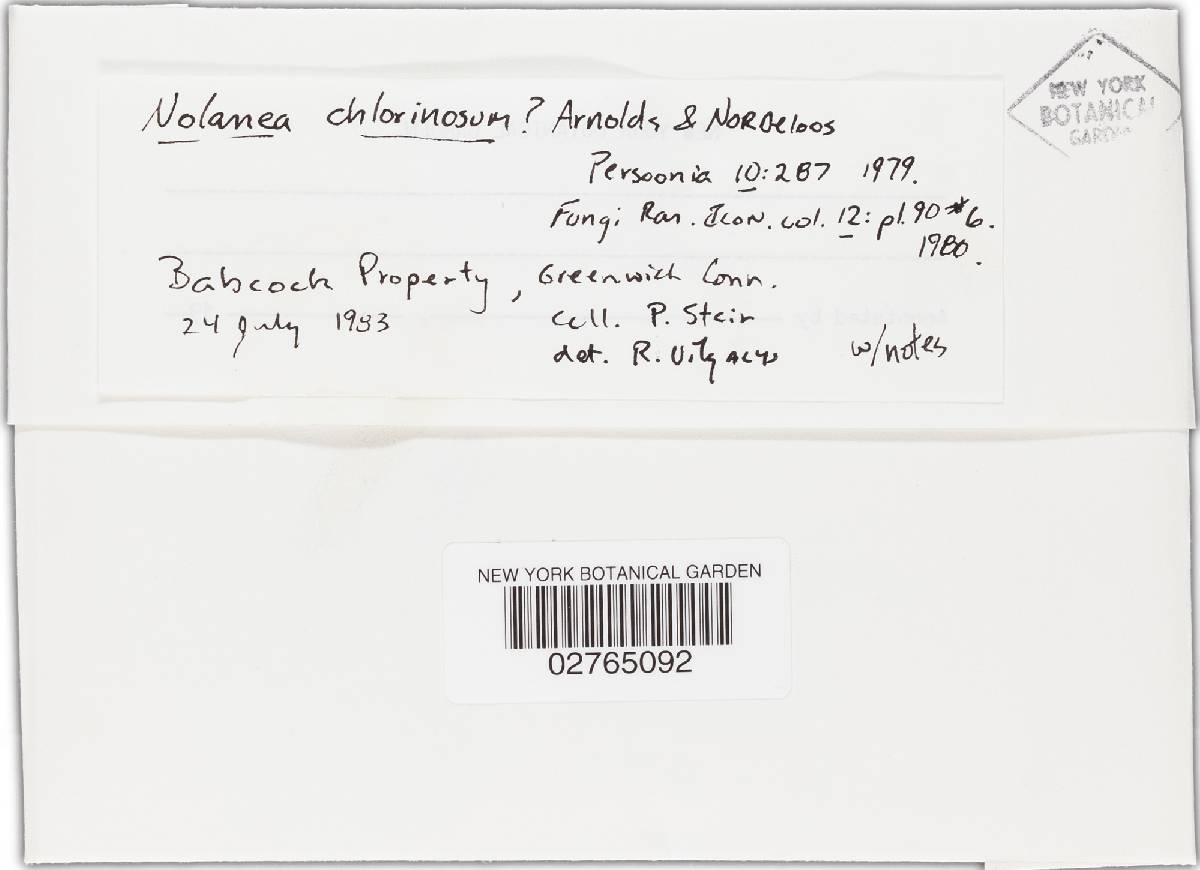 Nolanea chlorinosum? Arnolds & NORDELOOS
Persoonia 10:287 1979.
Fungi Rar. Icon. col. 12: pl. 90 #6.
1980.
Babcock Property, Greenwich Conn.
24 July 1983
coll. P. Stein
det. R. Vilgalys w/notes
NEW YORK
BOTANICAL
GARDEN
NEW YORK BOTANICAL GARDEN
02765092